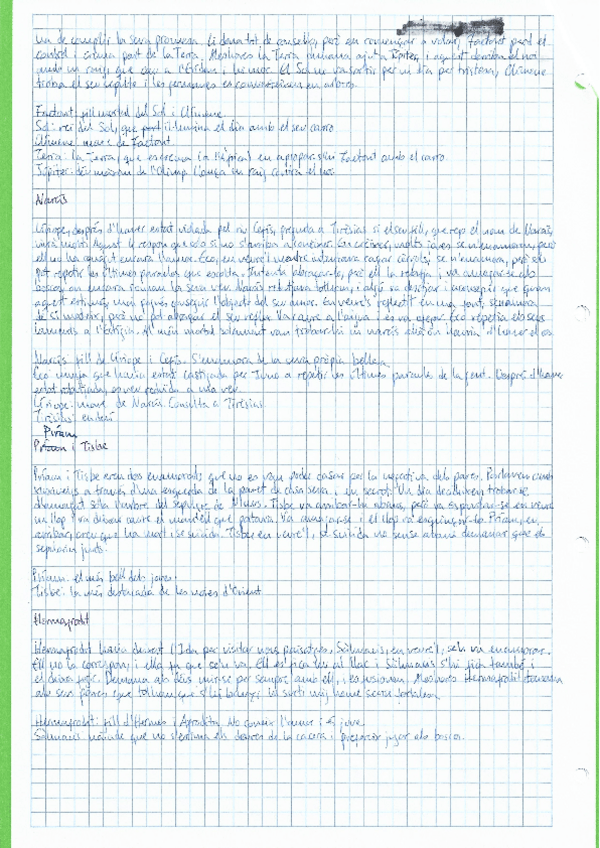 un de complir la seva promesa. Li dona tot de consells, però en començar a volar, Faetont perd el
control i crema part de la Terra. Aleshores la Terra demana ajuda Júpiter, i aquest derriba el noi
amb un raig que cau a l'Erídan i hi mor. El Sol no va sortir per un dia per tristesa, Clímene
troba el seu sepulcre i les germanes es converteixen en arbres.
Faetont: fill mortal del Sol i Clímene
Sol: rei del Sol, que il·lumina el dia amb el seu carro.
Clímene: mare de Faetont
Terra: la Terra, que en apropar-s'hi Faetont amb el carro.
Júpiter: déu màxim de l'Olimp. Llança un raig contra el noi
Narcís
Liríope, després d'haver estat violada pel riu Cefís, pregunta a Tirèsias si el seu fill, que rep el nom de Narcís,
viurà molts anys. Li respon que sólo si no s'arriba a conèixer. En créixer, molts joves se n'enamoren, però
ell no ha conegut encara l'amor. Eco, en veure'l mentre caçava cérvols, se n'enamora, però sols
pot repetir les últimes paraules que escolta. Intenta abraçar-lo, però ell la rebutja i va amagar-se als
boscos, on encara sonava la seva veu. Narcís rebutjava tothom, i algú va desitjar que quan
aquest estimés, mai pogués aconseguir l'objecte del seu amor. En veure's reflectit en una font, s'enamora
de si mateix, però no pot abraçar el seu reflex. Va caure a l'aigua i es va ofegar. Eco repetia els seus
laments a l'Estígia. Al món mortal solament van trobar-hi un narcís allà on hauria d'haver el cos.
Narcís: fill de Liríope i Cefís. S'enamora de la seva pròpia bellesa
Eco: nimfa que havia estat castigada per Juno a repetir les últimes paraules de la gent. Després d'haver
estat rebutjada, es veu reduïda a una veu.
Liríope: mare de Narcís. Consulta a Tirèsias
Tirèsias: endeví
Píram
Príam i Tisbe
Píram i Tisbe eren dos enamorats que no es van poder casar per la negativa dels pares. Parlaven amb
a través d'una esquerda de la paret de casa seva, en secret. Un dia decideixen trobar-se
d'amagat sota l'arbre del sepulcre de Ninus. Tisbe va arribar-hi abans, però va espantar-se en veure
un llop i va deixar caure el mantell que portava. Va amagar-se i el llop va esquinçar-lo. Píram, en
arribar, creu que ha mort i se suïcida. Tisbe, en veure'l, se suïcida no sense abans demanar que els
separin junts.
Píram: el més bell dels joves.
Tisbe: la més destacada de les noies d'Orient
Hermafrodit
Hermafrodit havia deixat l'Ida per visitar nous paisatges. Sàlmacis, en veure'l, se'n va enamorar.
Ell no la correspon, i ella fa que se'n va. Ell es fica al llac i Sàlmacis s'hi fica també i
Demana als déus unir-se per sempre amb ell, i es fusionen. Aleshores Hermafrodit demana
als seus pares que tothom que s'hi banyi en surti mig home sense fortalesa.
Hermafrodit: fill d'Hermes i Afrodita. No coneix l'amor i és jove.
Sàlmacis: nàiade que no s'entrena els de la cacera i prefereix jugar als boscos.